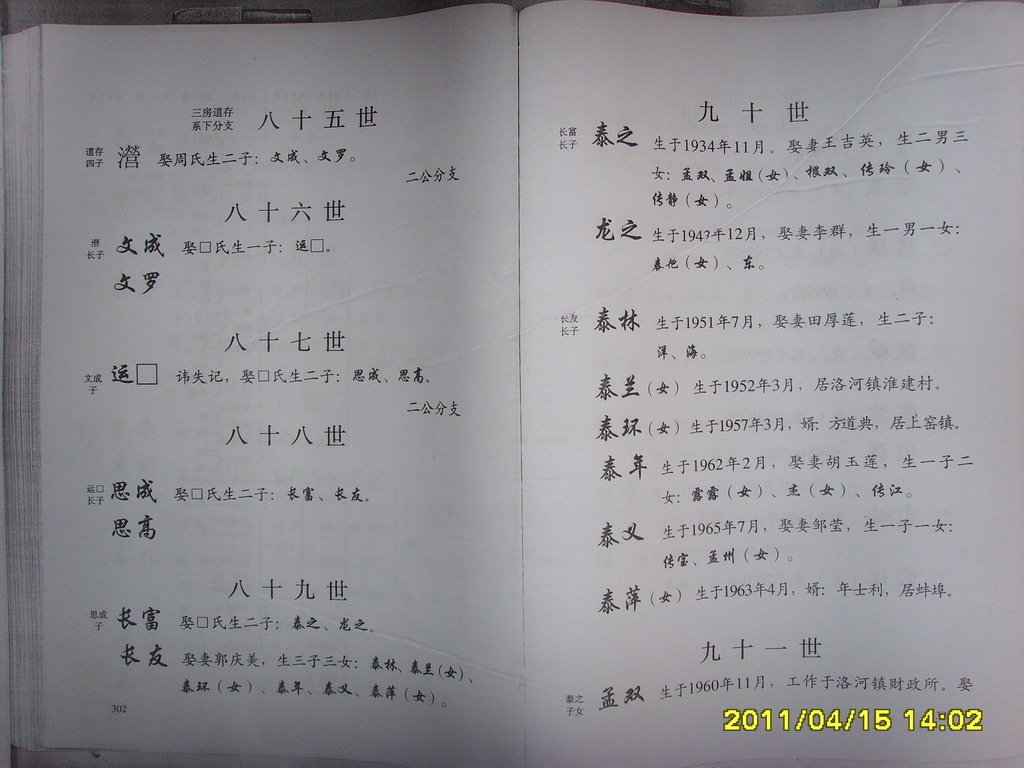 三房道存
系下分支 八十五世
道存
四子 濳 娶周氏生二子：文成、文罗。
二公分支
八十六世
濳
长子 文成 娶□氏生一子：运□。
文罗
八十七世
文成
子 运□ 讳失记，娶□氏生二子：思成、思高。
二公分支
八十八世
运□
长子 思成 娶□氏生二子：长富、长友。
思高
八十九世
思成
子 长富 娶□氏生二子：泰之、龙之。
长友 娶妻郭庆美，生三子三女：泰林、泰兰（女）、
泰环（女）、泰年、泰义、泰萍（女）。
302
九十世
长富
长子 泰之 生于1934年11月。娶妻王吉英，生二男三
女：孟双、孟姐（女）、根双、传玲（女）、
传静（女）。
龙之 生于1943年12月，娶妻李群，生一男一女：
（女）、东。
长友
长子 泰林 生于1951年7月，娶妻田厚莲，生二子：
洋、海。
泰兰（女） 生于1952年3月，居洛河镇淮建村。
泰环（女） 生于1957年3月，婿：方道典，居上窑镇。
泰年 生于1962年2月，娶妻胡玉莲，生一子二
女：露露（女）、杰（女）、传江。
泰义 生于1965年7月，娶妻邹莹，生一子一女：
传宝、孟州（女）。
泰萍（女） 生于1963年4月，婿：年士利，居蚌埠。
九十一世
泰之
子女 孟双 生于1960年11月，工作于洛河镇财政所。娶
2011/04/15 14:02